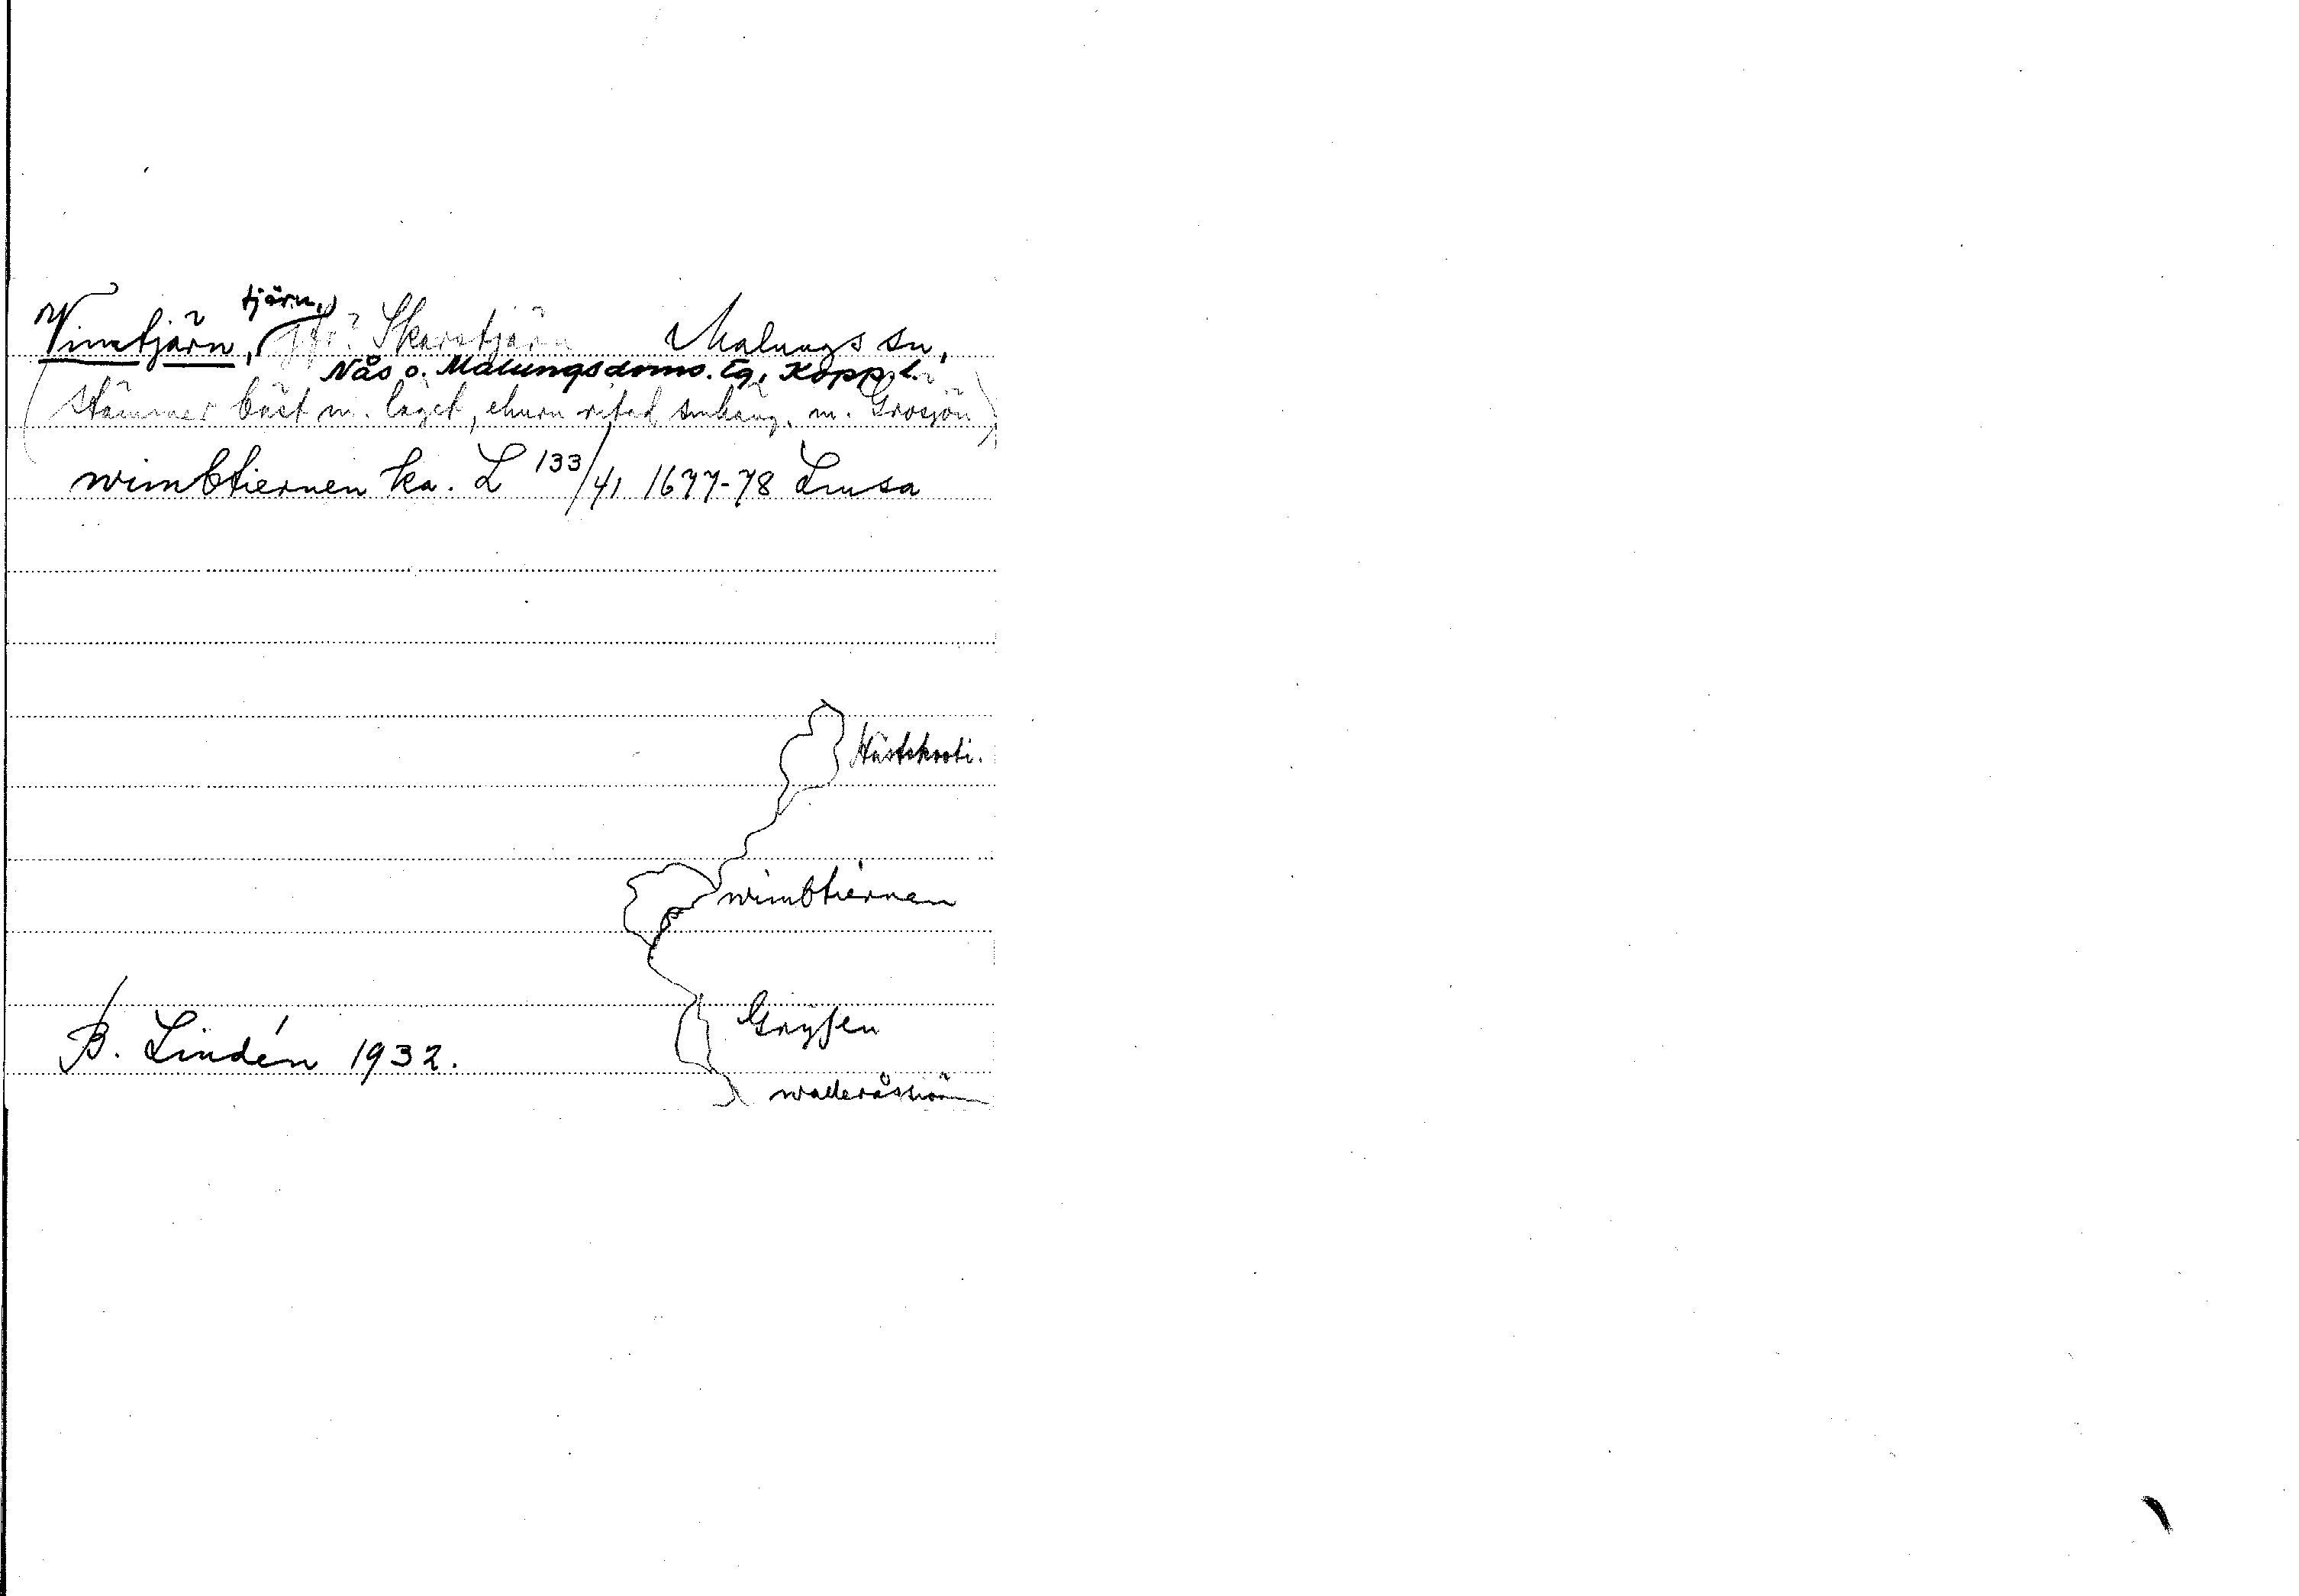 Vimtjärn, tjärn, jfr? Skarstjärn Malungs sn,
Nås o. Malungsdoms. tg, Kopp. l.
(stämmer bäst m. läget, ehuru ritad smhäng. m. Grosjön)
wimbtiernen ka. L 133/41 1677-78 Limsa
Hästskooti.
wimbtiernen
Gryssen
walleråssiön
B. Lindén 1932.